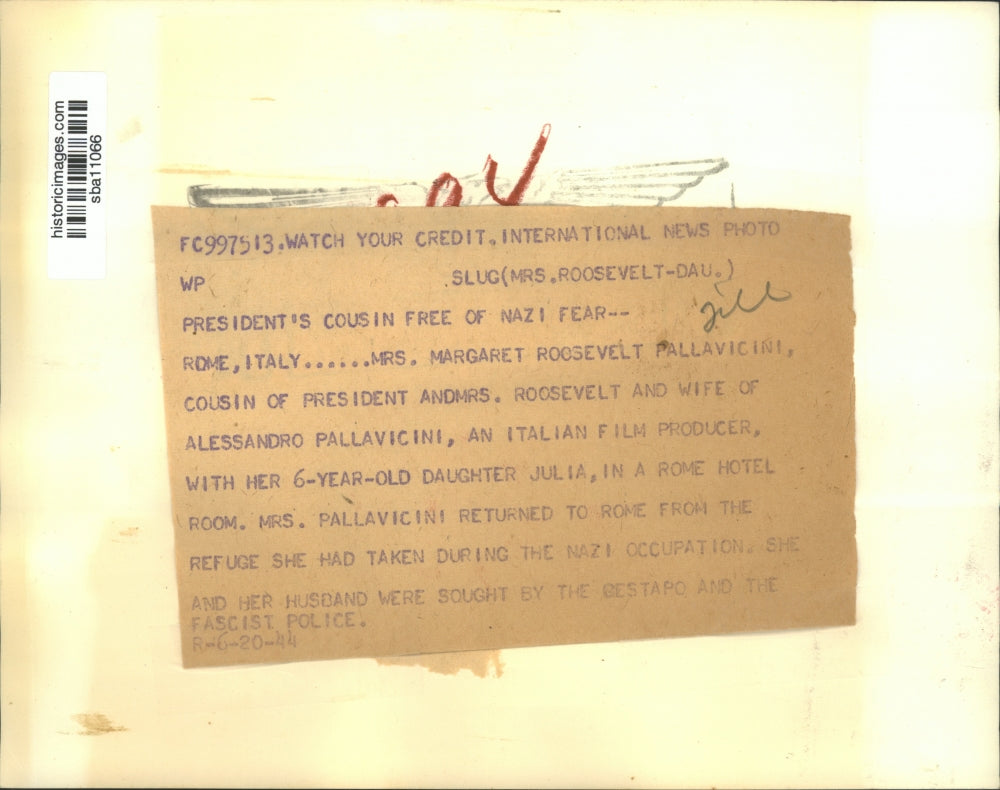 historicimages.com
sba11066
FC997513.WATCH YOUR CREDIT.INTERNATIONAL NEWS PHOTO
WP SLUG(MRS.ROOSEVELT-DAU.)
PRESIDENT'S COUSIN FREE OF NAZI FEAR--
ROME,ITALY......MRS. MARGARET ROOSEVELT PALLAVICINI,
COUSIN OF PRESIDENT ANDMRS. ROOSEVELT AND WIFE OF
ALESSANDRO PALLAVICINI, AN ITALIAN FILM PRODUCER,
WITH HER 6-YEAR-OLD DAUGHTER JULIA, IN A ROME HOTEL
ROOM. MRS. PALLAVICINI RETURNED TO ROME FROM THE
REFUGE SHE HAD TAKEN DURING THE NAZI OCCUPATION. SHE
AND HER HUSBAND WERE SOUGHT BY THE GESTAPO AND THE
FASCIST POLICE.
R-6-20-44